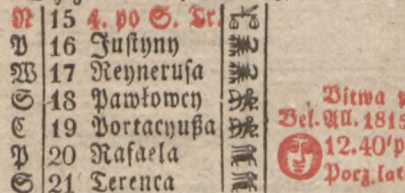 N 15 4. po S. Tr.
P 16 Juſtyny
W 17 Reyneruſa
S 18 Pawłowcy
C 19 Bortacyußa
P 20 Rafaela
S 21 Terenca
Bitwa
Bel. All. 1815
12.40'p
Pocz. lat